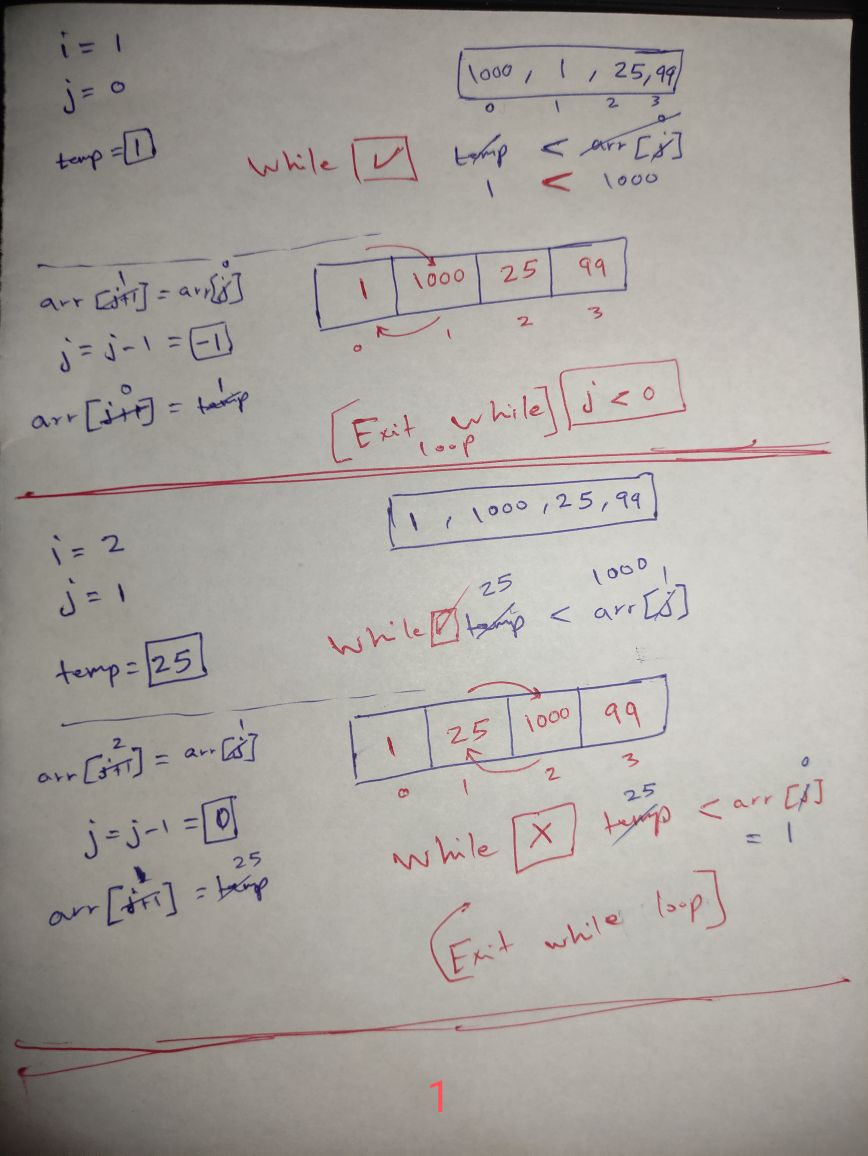 i = 1
j = 0
temp = 1
1000 , 1 , 25, 99
0 1 2 3
while ✓ temp < arr[j]
0
1 < 1000
arr[j+1] = arr[j]
1 0
j = j-1 = -1
arr[j+1] = temp
0 1
1 1000 25 99
0 1 2 3
[Exit while] j < 0
loop
i = 2
j = 1
temp = 25
1 , 1000 , 25, 99
25 1000 1
while ✓ temp < arr[j]
arr[j+1] = arr[j]
2 1
j = j-1 = 0
25
arr[j+1] = temp
1 25 1000 99
0 1 2 3
25 0
while X temp < arr[j]
= 1
[Exit while loop]
1